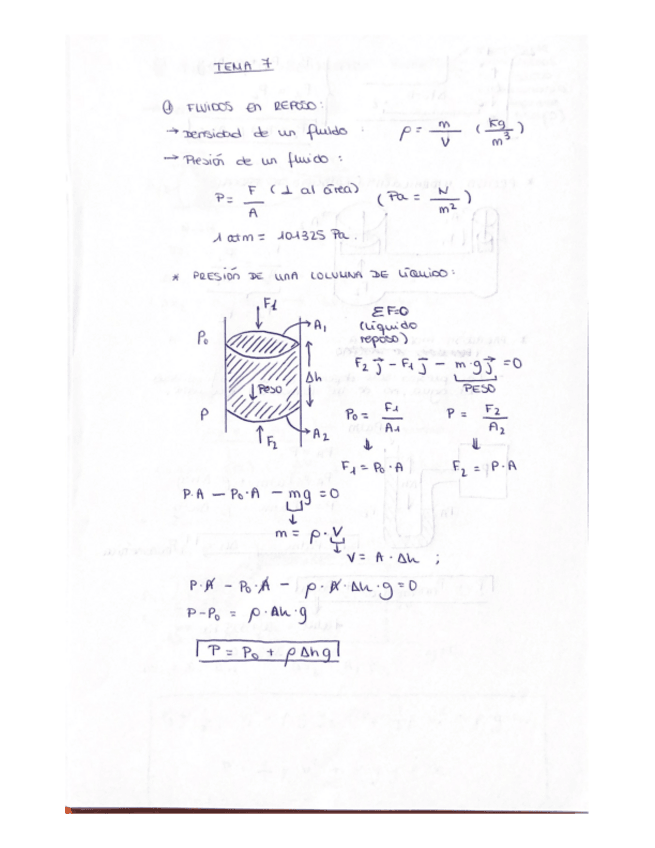 TEMA 7
① FLUIDOS EN REPOSO:
→ Densidad de un fluido : ρ = m/V (kg/m³)
→ Presión de un fluido :
P = F/A (⊥ al área) (Pa = N/m²)
1 atm = 101325 Pa.
* PRESIÓN DE UNA COLUMNA DE LÍQUIDO:
F1
A₁
P₀
Δh
PESO
P
A₂
F₂
ΣF=0
(líquido
reposo)
F₂ j⃗ - F₁ j⃗ - m·g j⃗ = 0
PESO
P₀ = F1/A1 P = F2/A2
F₁ = P₀·A F₂ = P·A
P·A - P₀·A - mg = 0
m = ρ·V
V = A·Δh ;
P·A - P₀·A - ρ·A·Δh·g = 0
P-P₀ = ρ·Δh·g
P = P₀ + ρΔhg